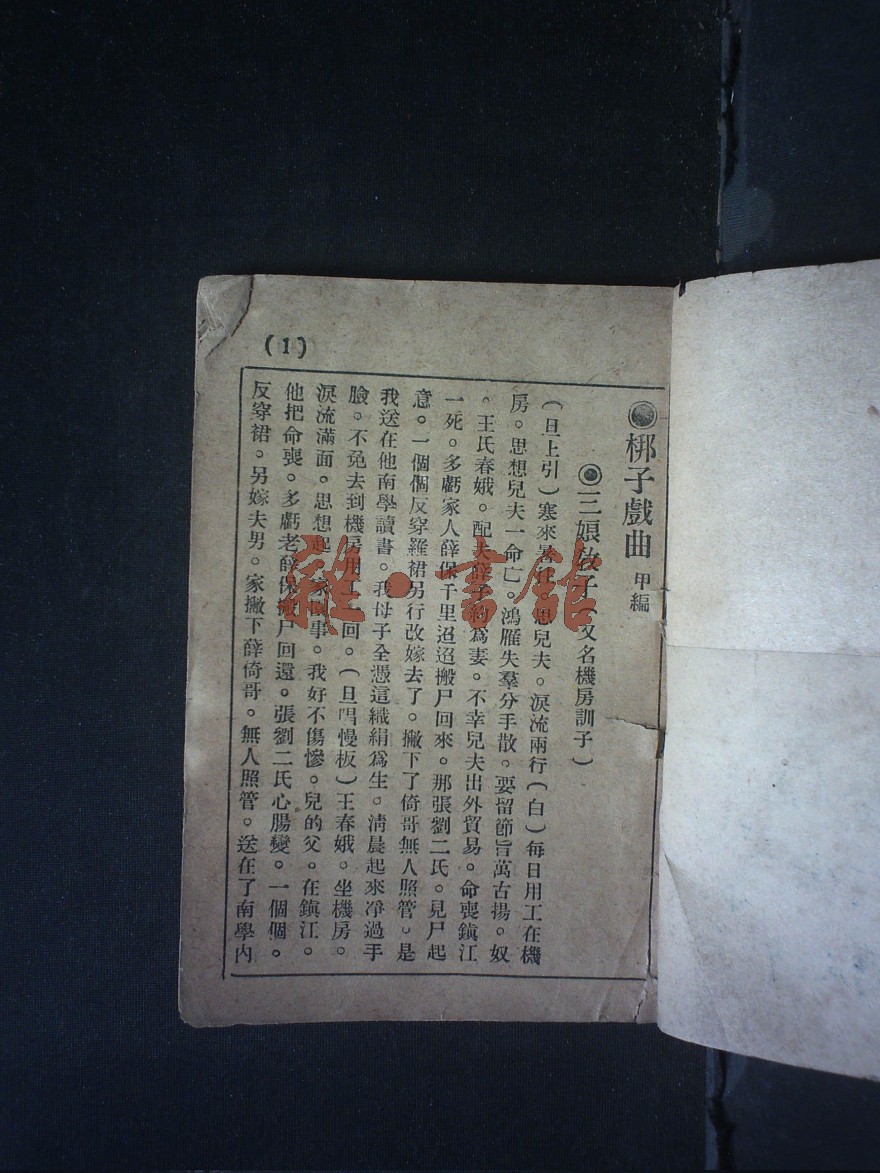 (1)
梆子戲曲 甲編
三娘教子(又名機房訓子)
(旦上引)寒來暑 思兒夫。淚流兩行(白)每日用工在機
房。思想兒夫一命亡。鴻雁失羣分手散。要留節旨萬古揚。奴
。王氏春娥。配夫薛子約爲妻。不幸兒夫出外貿易。命喪鎭江
一死。多虧家人薛保千里迢迢搬尸回來。那張劉二氏。見尸起
意。一個個反穿羅裙另行改嫁去了。撇下了倚哥無人照管。是
我送在他南學讀書。我母子全憑這織絹爲生。淸晨起來凈過手
臉。不免去到機房用工 回。(旦唱慢板)王春娥。坐機房。
淚流滿面。思想起 事。我好不傷慘。兒的父。在鎭江。
他把命喪。多虧老薛保搬尸回還。張劉二氏心腸變。一個個。
反穿裙。另嫁夫男。家撇下薛倚哥。無人照管。送在了南學內
雜·書館